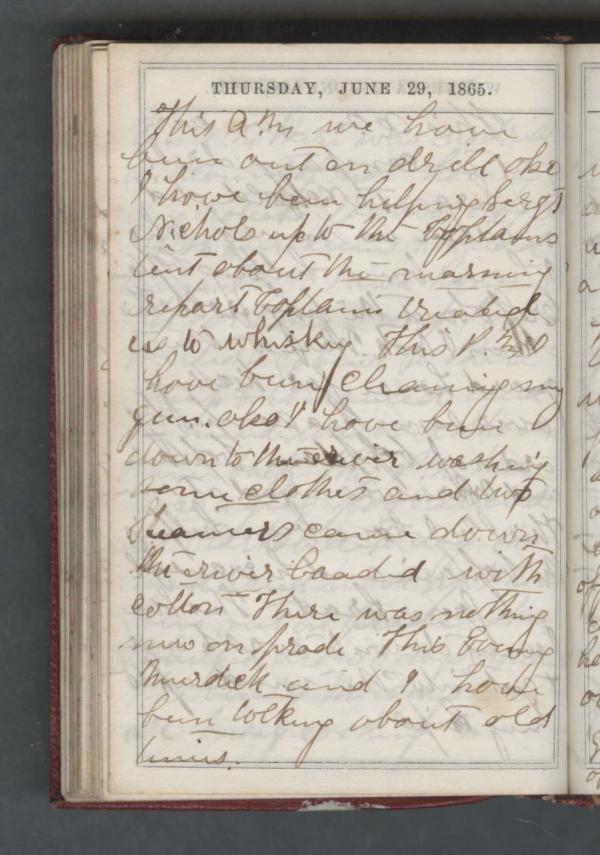 THURSDAY, JUNE 29, 1865.
This A.M we have
been out on drill also
I have been helping Sergt
Nichols up to the Captains
tent about the morning
report Captain treated
us to whiskey This P.M I
have been cleaning my
gun. also I have been
down to the river washing
some clothes and two
steamers came down
the river loaded with
cotton There was nothing
new on prade This Evening
Murdick and I have
been talking about old
times.